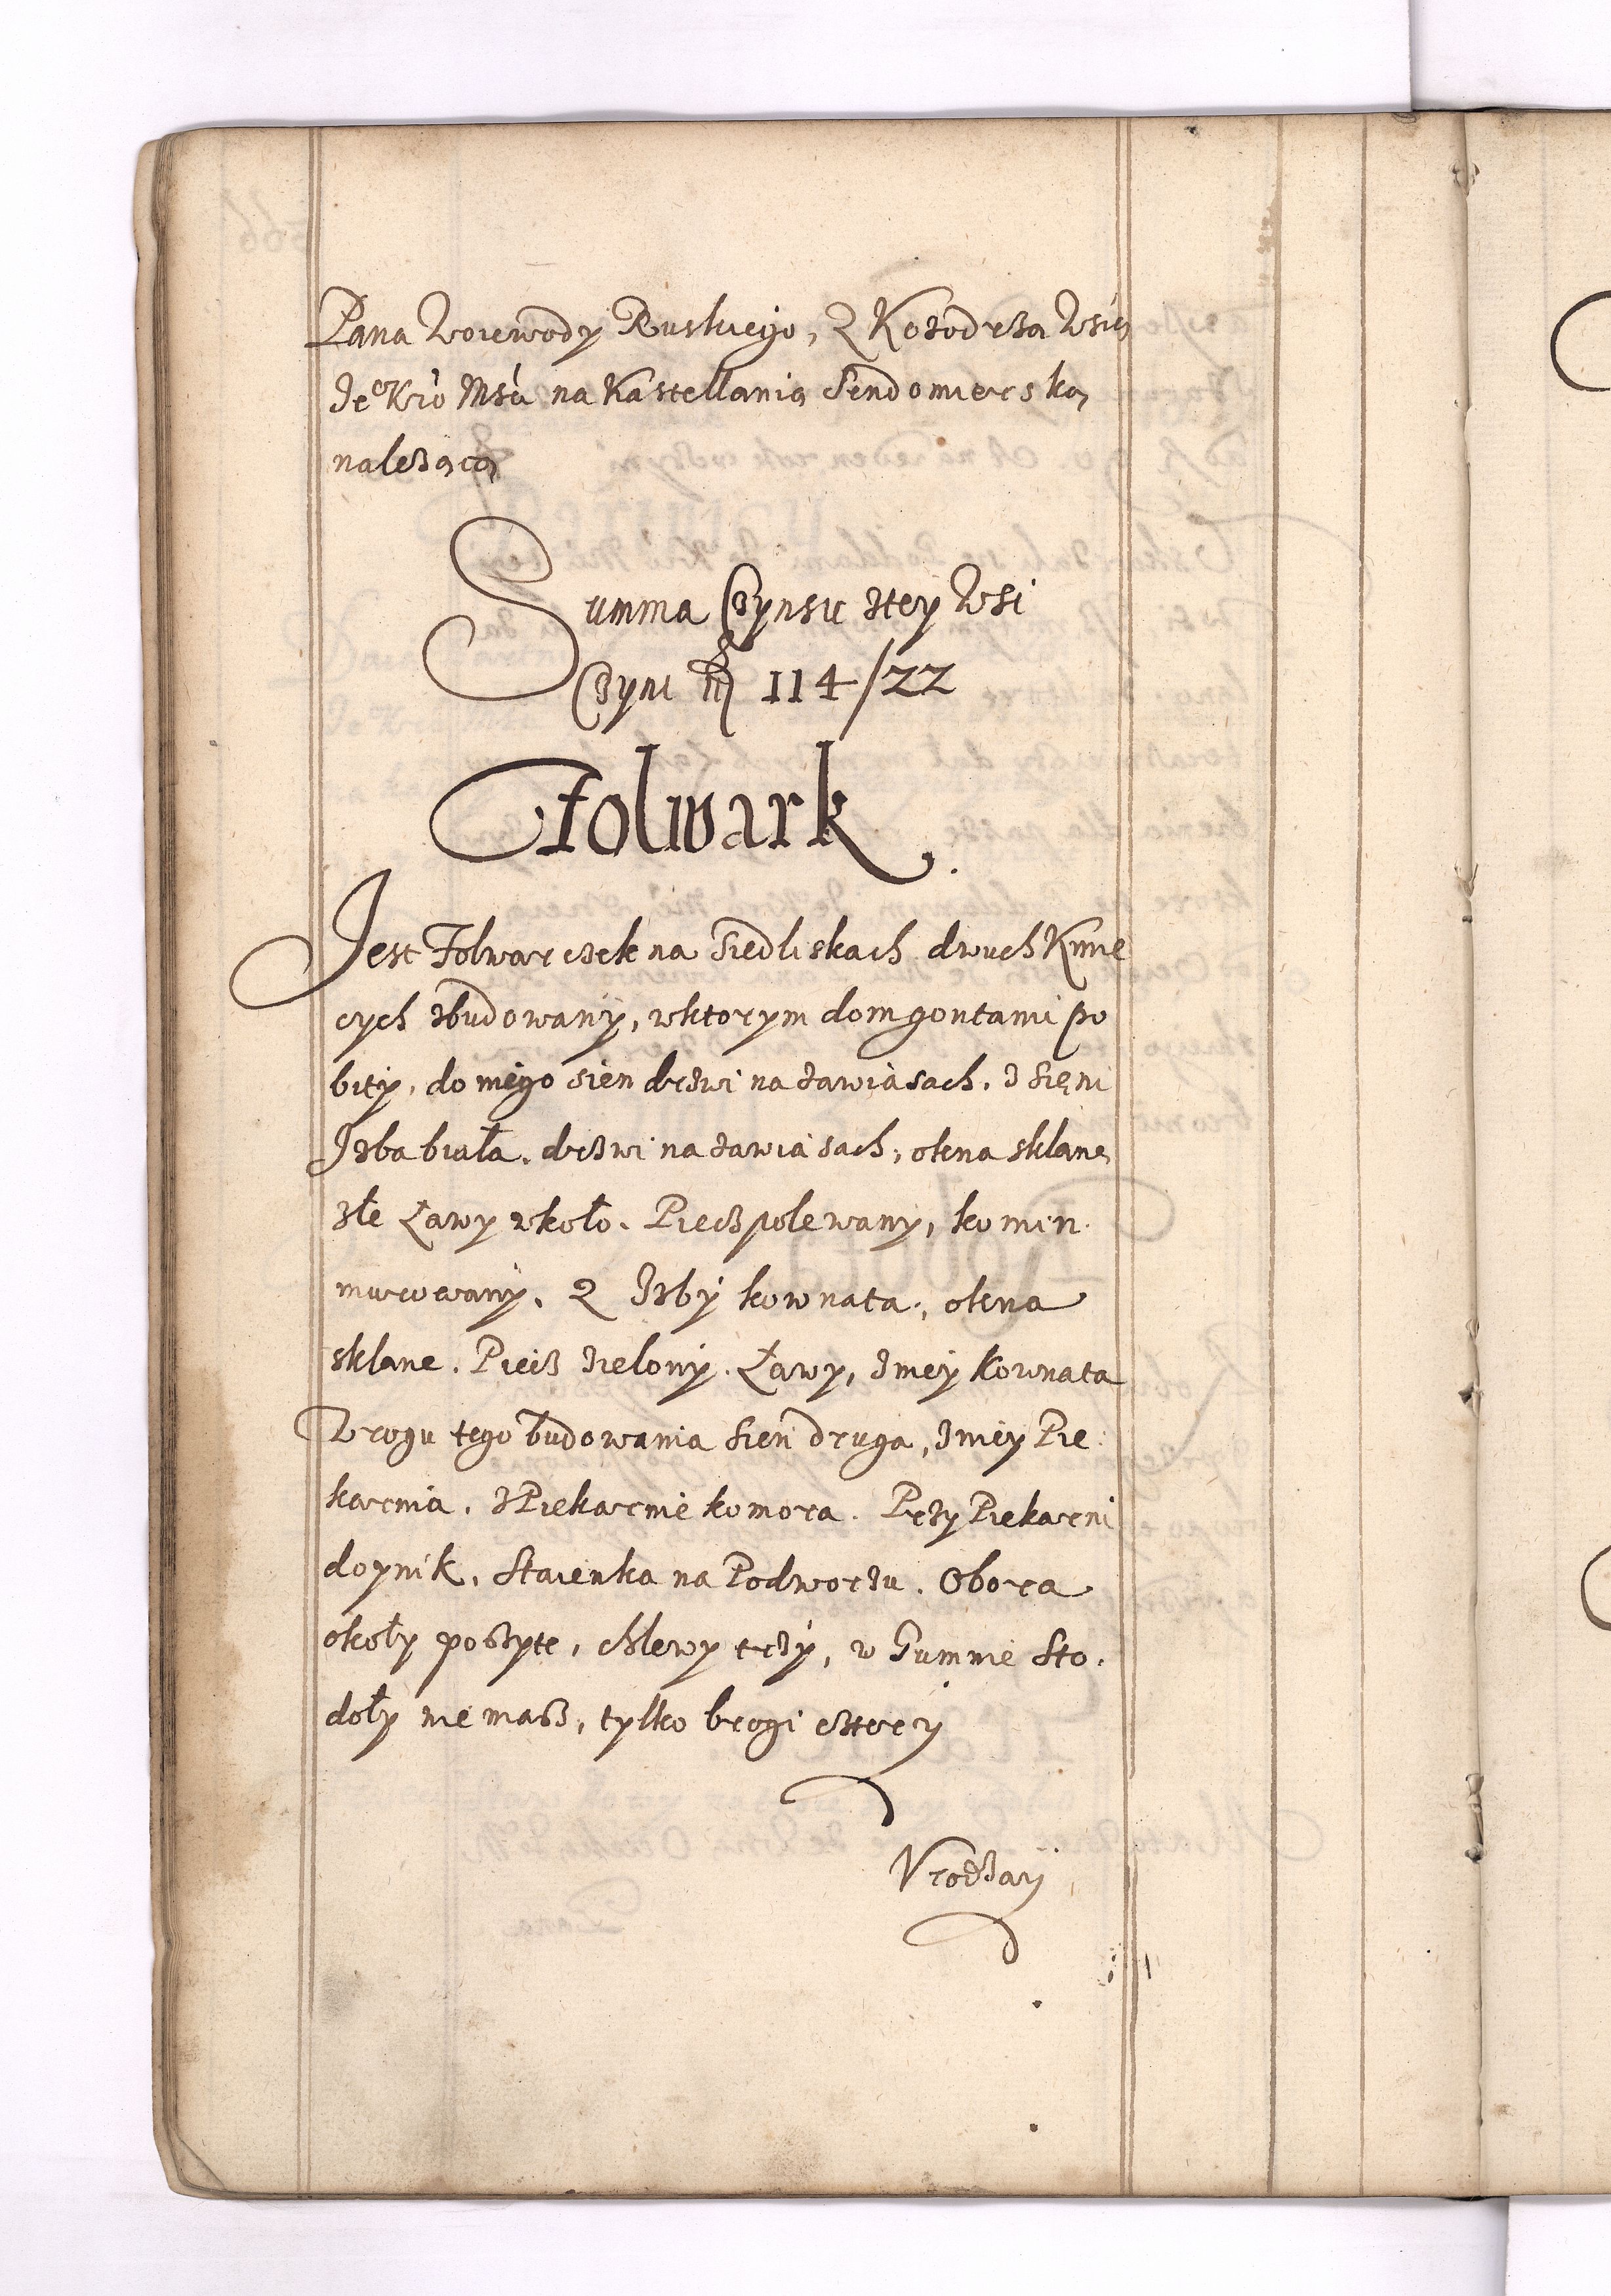 Pana Woiewody Ruskiego, Z Kozodrza Wsią
Je° Kró Mśći na Kastellanią Sendomierską
należącą
Summa Czynszu ztey Wsi
Czyni fl 114/22
Folwark.
Jest Folwarczek na Siedliskach dwuch Kmie
cych zbudowany, wktorym dom gontami po
bity, do niego sien drzwi na zawiasach. z Sięni
Izba biała. drzwi na zawiasach, okna sklane,
złe Ławy wkoło. Piecz polewany, komin
murowany. Z Izby kownata, okna
sklane. Piecz zielony. Ławy, zniey Kownata
W rogu tego budowania Sien druga, zniey Pie
karnia. z Piekarnie komora. Przy Piekarni
doynik, Staienka na Podworzu. Obora
okoły poszyte, chlewy trzy, w Gumnie Sto.
doły nie masz, tylko brogi cztery
Vrodzay